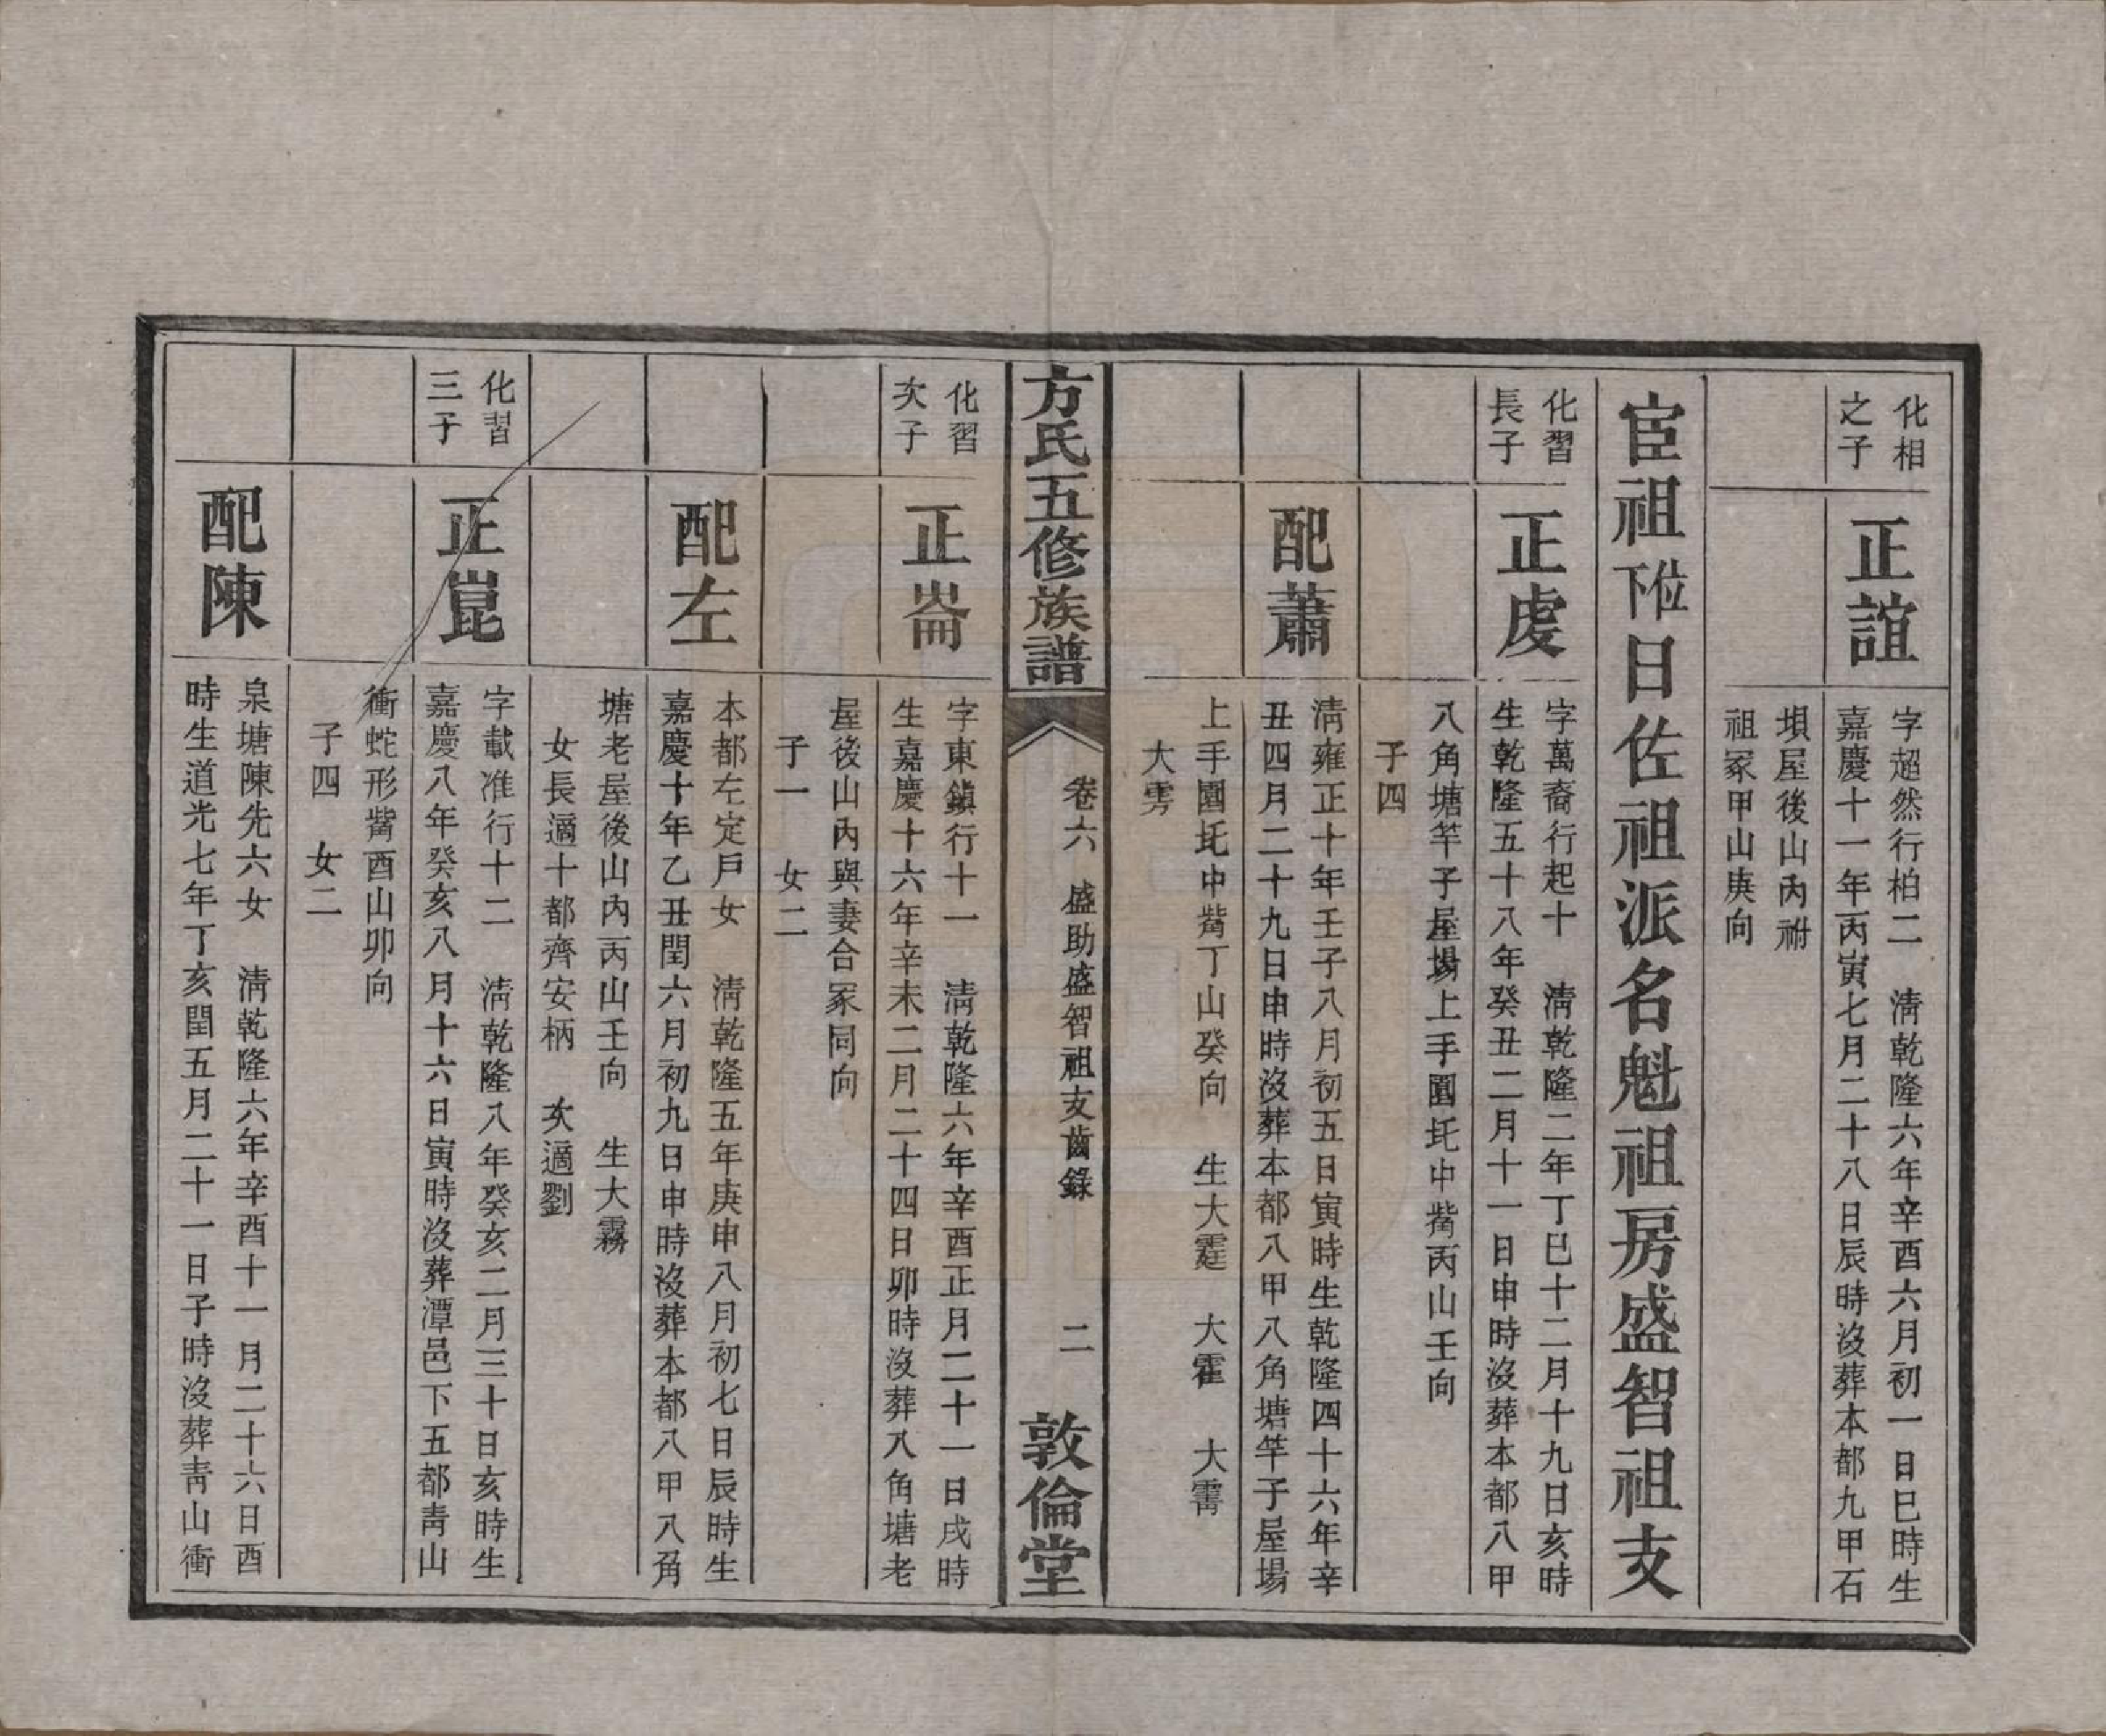 化相
之子
正誼
字超然行柏二　清乾隆六年辛酉六月初一日巳時生
嘉慶十一年丙寅七月二十八日辰時沒葬本都九甲石
垻屋後山內祔
祖冢甲山庚向
宦祖下位日佐祖派名魁祖房盛智祖支
化習
長子
正虔
字萬裔行起十　清乾隆二年丁巳十二月十九日亥時
生乾隆五十八年癸丑二月十一日申時沒葬本都八甲
八角塘竿子屋場上手園圫中觜丙山壬向
子四
配蕭
清雍正十年壬子八月初五日寅時生乾隆四十六年辛
丑四月二十九日申時沒葬本都八甲八角塘竿子屋場
上手園圫中觜丁山癸向　生大霆　大霍　大霄
大雱
方氏五修族譜
卷六　盛助盛智祖支齒錄
二
敦倫堂
化習
次子
正崙
字東鎮行十一　清乾隆六年辛酉正月二十一日戌時
生嘉慶十六年辛未二月二十四日卯時沒葬八角塘老
屋後山內與妻合冢同向
子一　女二
配左
本都左定戶女　清乾隆五年庚申八月初七日辰時生
嘉慶十年乙丑閏六月初九日申時沒葬本都八甲八角
塘老屋後山內丙山壬向　生大霧
女長適十都齊安柄　次適劉
化習
三子
正崑
字載准行十二　清乾隆八年癸亥二月三十日亥時生
嘉慶八年癸亥八月十六日寅時沒葬潭邑下五都靑山
衝蛇形觜酉山卯向
子四　女二
配陳
泉塘陳先六女　清乾隆六年辛酉十一月二十六日酉
時生道光七年丁亥閏五月二十一日子時沒葬靑山衝